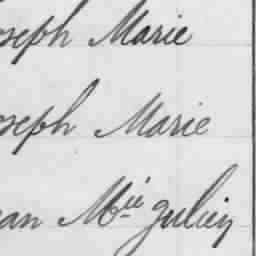 oseph Marie
oseph Marie
ean Mie Julien